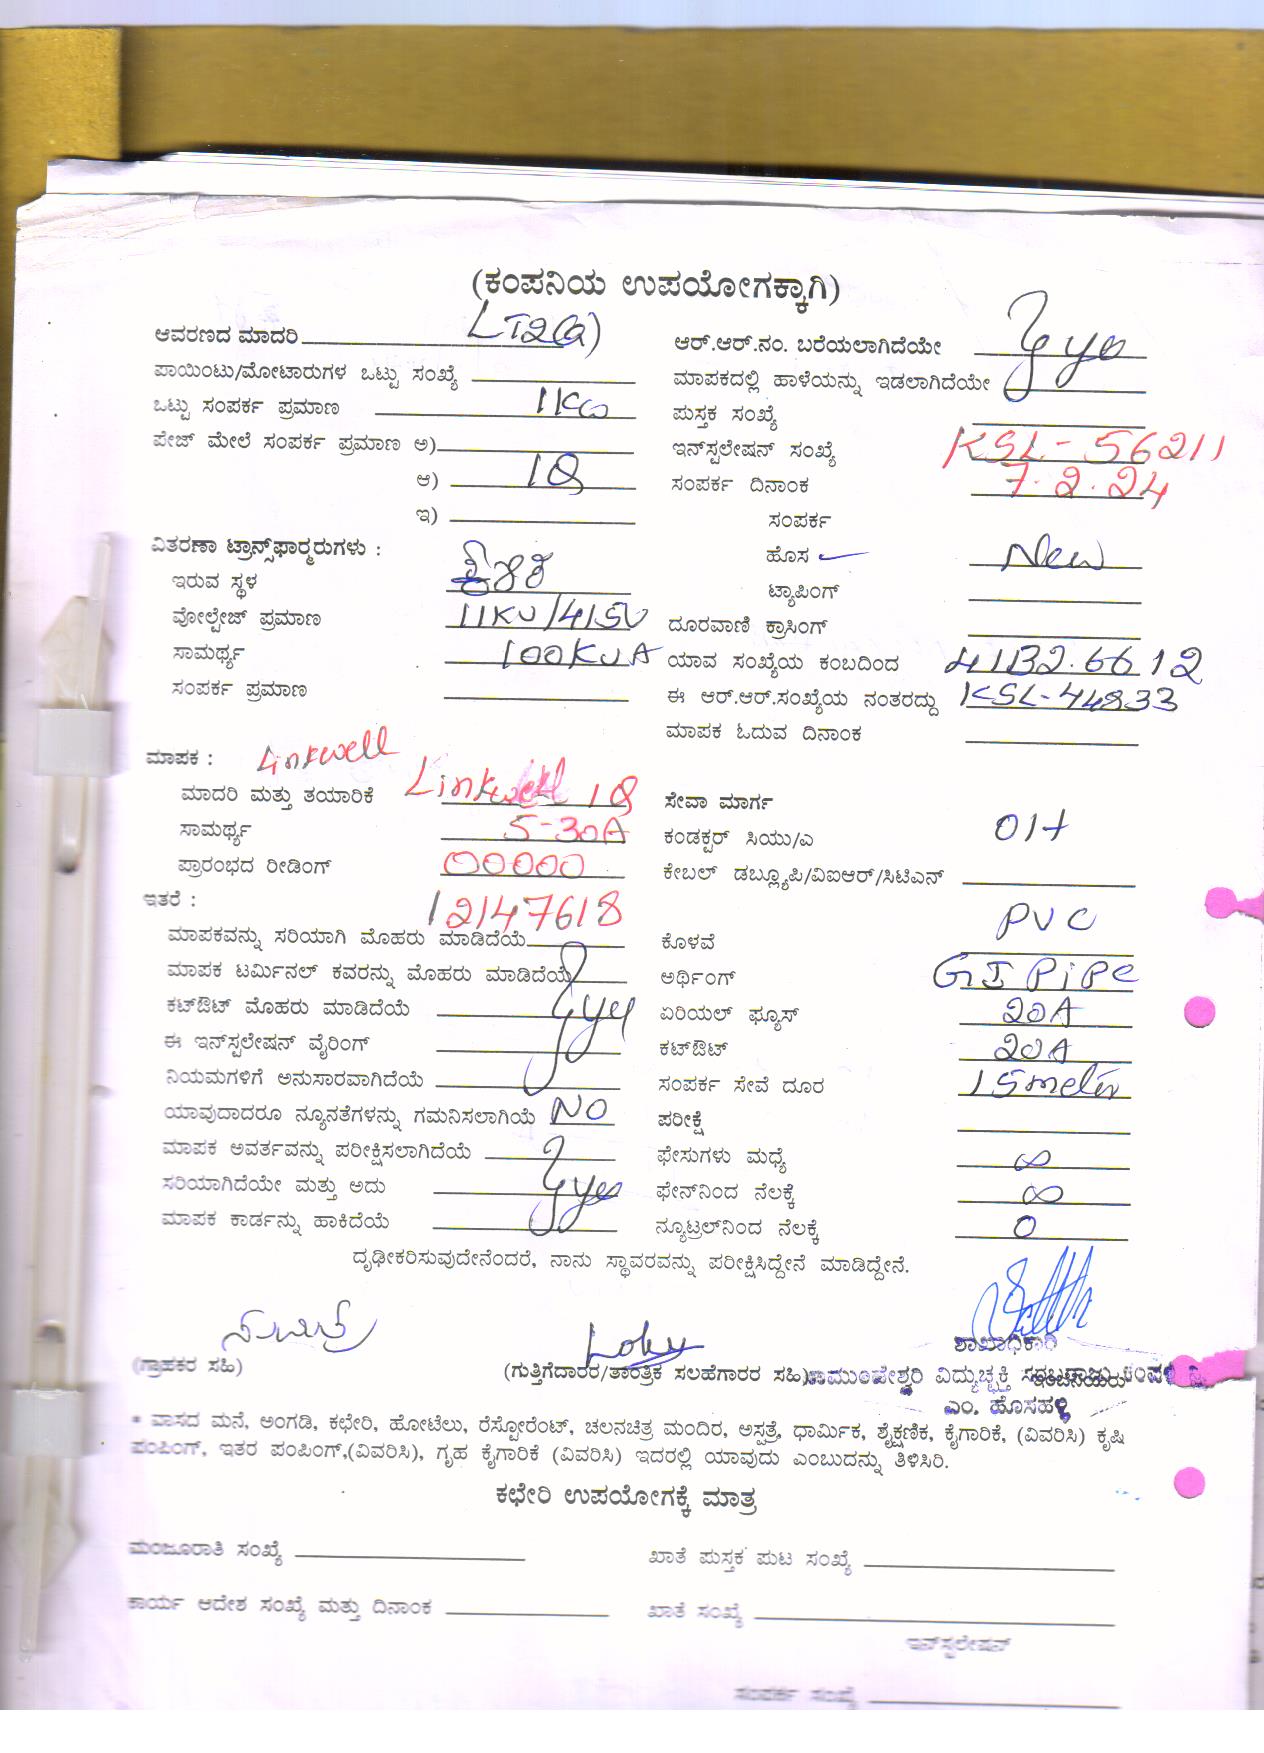 (ಕಂಪನಿಯ ಉಪಯೋಗಕ್ಕಾಗಿ)
ಆವರಣದ ಮಾದರಿ LT2(a) ಆರ್.ಆರ್.ನಂ. ಬರೆಯಲಾಗಿದೆಯೇ yes
ಪಾಯಿಂಟು/ಮೋಟಾರುಗಳ ಒಟ್ಟು ಸಂಖ್ಯೆ ಮಾಪಕದಲ್ಲಿ ಹಾಳೆಯನ್ನು ಇಡಲಾಗಿದೆಯೇ
ಒಟ್ಟು ಸಂಪರ್ಕ ಪ್ರಮಾಣ 1KW ಪುಸ್ತಕ ಸಂಖ್ಯೆ
ಪೇಜ್ ಮೇಲೆ ಸಂಪರ್ಕ ಪ್ರಮಾಣ ಅ) ಇನ್‌ಸ್ಟಲೇಷನ್ ಸಂಖ್ಯೆ KSL-56211
ಆ) 1Φ ಸಂಪರ್ಕ ದಿನಾಂಕ 7.2.24
ಇ) ಸಂಪರ್ಕ
ವಿತರಣಾ ಟ್ರಾನ್ಸ್‌ಫಾರ್ಮರುಗಳು : ಹೊಸ New
ಇರುವ ಸ್ಥಳ ಟ್ಯಾಪಿಂಗ್
ವೋಲ್ಟೇಜ್ ಪ್ರಮಾಣ 11KV/415V ದೂರವಾಣಿ ಕ್ರಾಸಿಂಗ್
ಸಾಮರ್ಥ್ಯ 100KVA ಯಾವ ಸಂಖ್ಯೆಯ ಕಂಬದಿಂದ
ಸಂಪರ್ಕ ಪ್ರಮಾಣ ಈ ಆರ್.ಆರ್.ಸಂಖ್ಯೆಯ ನಂತರದ್ದು KSL-44833
ಮಾಪಕ ಓದುವ ದಿನಾಂಕ
ಮಾಪಕ : Linkwell
ಮಾದರಿ ಮತ್ತು ತಯಾರಿಕೆ Linkwell 1Φ ಸೇವಾ ಮಾರ್ಗ
ಸಾಮರ್ಥ್ಯ 5-30A ಕಂಡಕ್ಟರ್ ಸಿಯು/ಎ OH
ಪ್ರಾರಂಭದ ರೀಡಿಂಗ್ 00000 ಕೇಬಲ್ ಡಬ್ಲ್ಯೂಪಿ/ವಿಐಆರ್/ಸಿಟಿಎನ್
ಇತರೆ : 12147618
ಮಾಪಕವನ್ನು ಸರಿಯಾಗಿ ಮೊಹರು ಮಾಡಿದೆಯೆ ಕೊಳವೆ PVC
ಮಾಪಕ ಟರ್ಮಿನಲ್ ಕವರನ್ನು ಮೊಹರು ಮಾಡಿದೆಯೆ ಅರ್ಥಿಂಗ್ GI PIPE
ಕಟ್‌ಔಟ್ ಮೊಹರು ಮಾಡಿದೆಯೆ yes ಏರಿಯಲ್ ಫ್ಯೂಸ್ 20A
ಈ ಇನ್‌ಸ್ಟಲೇಷನ್ ವೈರಿಂಗ್ ಕಟ್‌ಔಟ್ 20A
ನಿಯಮಗಳಿಗೆ ಅನುಸಾರವಾಗಿದೆಯೆ ಸಂಪರ್ಕ ಸೇವೆ ದೂರ 15meter
ಯಾವುದಾದರೂ ನ್ಯೂನತೆಗಳನ್ನು ಗಮನಿಸಲಾಗಿಯೆ NO ಪರೀಕ್ಷೆ
ಮಾಪಕ ಅವರ್ತವನ್ನು ಪರೀಕ್ಷಿಸಲಾಗಿದೆಯೆ ಫೇಸುಗಳು ಮಧ್ಯೆ ∞
ಸರಿಯಾಗಿದೆಯೇ ಮತ್ತು ಅದು yes ಫೇಸ್‌ನಿಂದ ನೆಲಕ್ಕೆ ∞
ಮಾಪಕ ಕಾರ್ಡನ್ನು ಹಾಕಿದೆಯೆ ನ್ಯೂಟ್ರಲ್‌ನಿಂದ ನೆಲಕ್ಕೆ 0
ದೃಢೀಕರಿಸುವುದೇನೆಂದರೆ, ನಾನು ಸ್ಥಾವರವನ್ನು ಪರೀಕ್ಷಿಸಿದ್ದೇನೆ ಮಾಡಿದ್ದೇನೆ.
ಶಾಖಾಧಿಕಾರಿ
(ಗ್ರಾಹಕರ ಸಹಿ) (ಗುತ್ತಿಗೆದಾರರ/ತಾಂತ್ರಿಕ ಸಲಹೆಗಾರರ ಸಹಿ) ವಿದ್ಯುಚ್ಛಕ್ತಿ
ಎಂ. ಹೊಸಹಳ್ಳಿ
* ವಾಸದ ಮನೆ, ಅಂಗಡಿ, ಕಛೇರಿ, ಹೋಟೆಲು, ರೆಸ್ಟೋರೆಂಟ್, ಚಲನಚಿತ್ರ ಮಂದಿರ, ಅಸ್ಪತ್ರೆ, ಧಾರ್ಮಿಕ, ಶೈಕ್ಷಣಿಕ, ಕೈಗಾರಿಕೆ, (ವಿವರಿಸಿ) ಕೃಷಿ
ಪಂಪಿಂಗ್, ಇತರ ಪಂಪಿಂಗ್,(ವಿವರಿಸಿ), ಗೃಹ ಕೈಗಾರಿಕೆ (ವಿವರಿಸಿ) ಇದರಲ್ಲಿ ಯಾವುದು ಎಂಬುದನ್ನು ತಿಳಿಸಿರಿ.
ಕಛೇರಿ ಉಪಯೋಗಕ್ಕೆ ಮಾತ್ರ
ಮಂಜೂರಾತಿ ಸಂಖ್ಯೆ ಖಾತೆ ಪುಸ್ತಕ ಪುಟ ಸಂಖ್ಯೆ
ಕಾರ್ಯ ಆದೇಶ ಸಂಖ್ಯೆ ಮತ್ತು ದಿನಾಂಕ ಖಾತೆ ಸಂಖ್ಯೆ
ಇನ್‌ಸ್ಟಲೇಷನ್
ಸಂಪರ್ಕ ಸಂಖ್ಯೆ